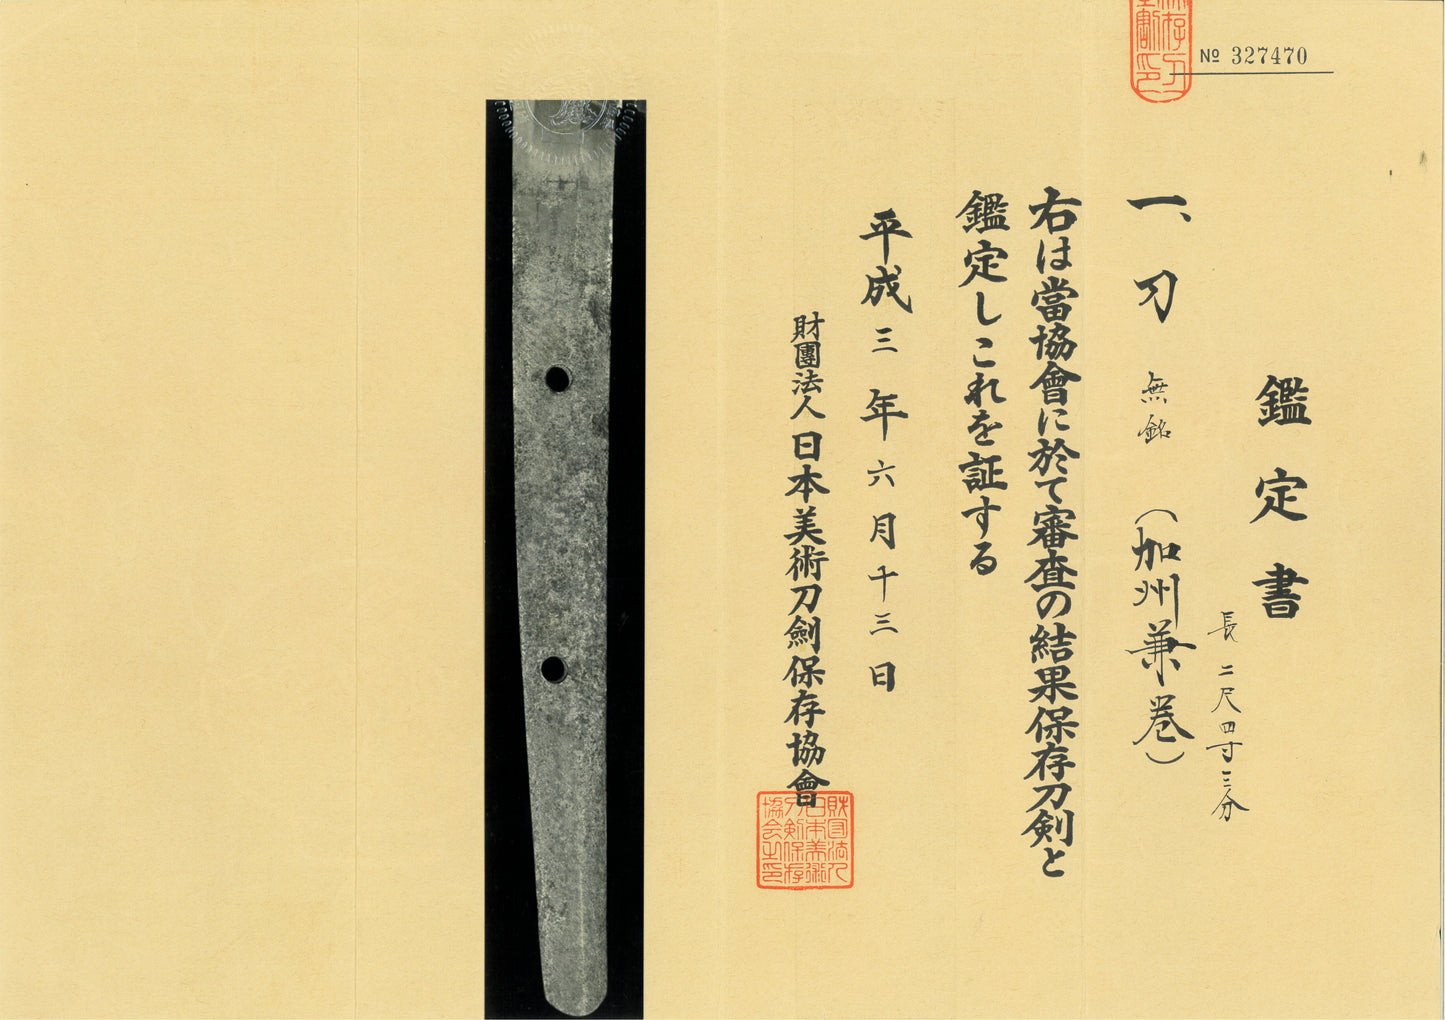 № 327470
鑑定書
長二尺四寸三分
一、刀 無銘 (加州兼巻)
右は當協會に於て審査の結果保存刀剣と
鑑定しこれを証する
平成三年六月十三日
財團法人日本美術刀劍保存協會
財団法人
日本美術
刀剣保存
協会之印